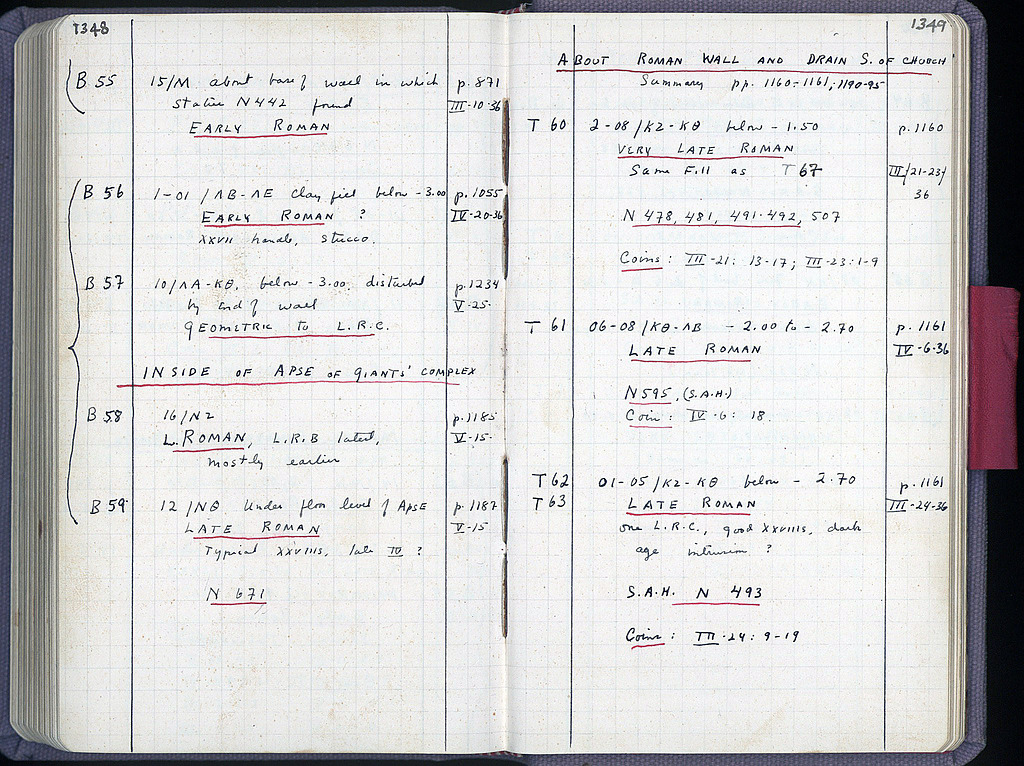 1348
B 55 15/M about base of wall in which p. 871
statue N442 found III-10-36
EARLY ROMAN
B 56 1-01 /ΛB-ΛE Clay fill below -3.00 p. 1055
EARLY ROMAN ? IV-20-36
XXVII handle, stucco.
B 57 10/ΛA-KΘ, below -3.00 disturbed p. 1234
by end of wall V-25-
GEOMETRIC to L.R.C.
INSIDE OF APSE OF GIANTS' COMPLEX
B 58 16/N2 p. 1185
L. ROMAN, L.R.B latest, V-15-
mostly earlier
B 59 12 /NΘ Under floor level of Apse p. 1187
LATE ROMAN V-15-
Typical XXVIIIs, late IV ?
N 671
1349
ABOUT ROMAN WALL AND DRAIN S. OF CHURCH
Summary pp. 1160-1161, 1190-95
T 60 2-08/KZ-KΘ below -1.50 p. 1160
VERY LATE ROMAN
Same Fill as T 67 III/21-23/
36
N 478, 481, 491-492, 507
Coins: III-21: 13-17; III-23: 1-9
T 61 06-08/KΘ-ΛB -2.00 to -2.70 p. 1161
LATE ROMAN IV-6-36
N595, (S.A.H.)
Coin: IV-6: 18.
T 62 01-05/KZ-KΘ below -2.70 p. 1161
T 63 LATE ROMAN III-24-36
one L.R.C., good XXVIIIs, dark
age intrusion ?
S.A.H. N 493
Coins: III-24: 9-19